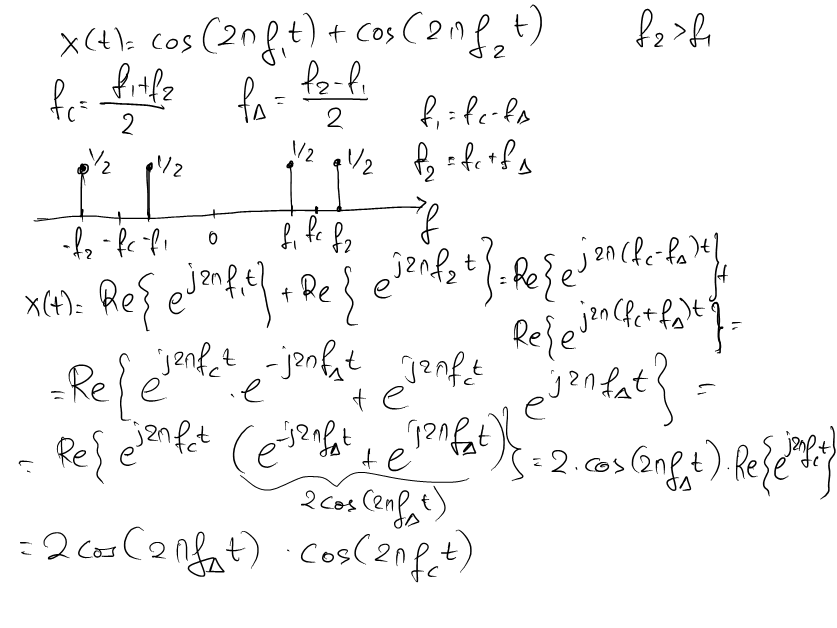 x(t) = cos(2πf₁t) + cos(2πf₂t) f₂ > f₁
f_c = (f₁+f₂)/2 f_Δ = (f₂-f₁)/2 f₁ = f_c - f_Δ
f₂ = f_c + f_Δ
1/2 1/2 1/2 1/2
-f₂ -f_c -f₁ 0 f₁ f_c f₂ f
x(t) = Re{e^{j2πf₁t}} + Re{e^{j2πf₂t}} = Re{e^{j2π(f_c-f_Δ)t}} +
Re{e^{j2π(f_c+f_Δ)t}} =
= Re{e^{j2πf_ct} · e^{-j2πf_Δt} + e^{j2πf_ct} e^{j2πf_Δt}} =
= Re{e^{j2πf_ct} (e^{-j2πf_Δt} + e^{j2πf_Δt})} = 2 · cos(2πf_Δt) · Re{e^{j2πf_ct}}
2cos(2πf_Δt)
= 2cos(2πf_Δt) · cos(2πf_ct)